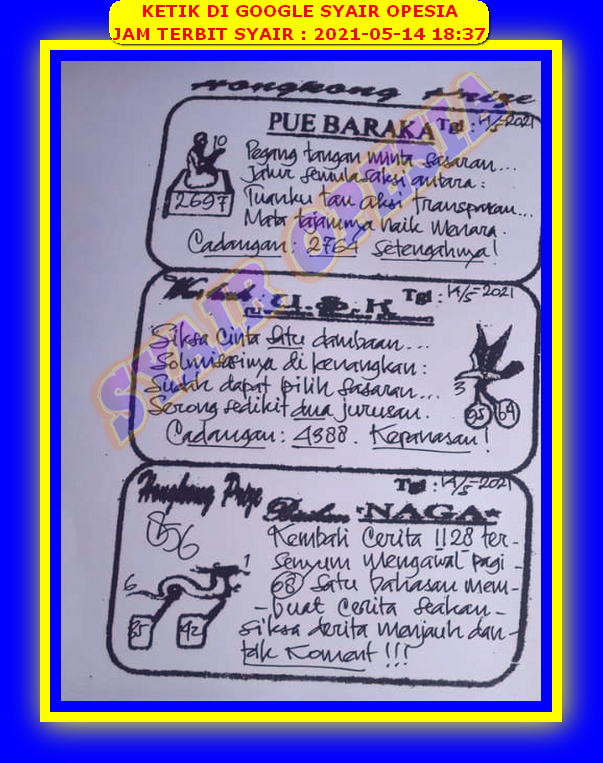 KETIK DI GOOGLE SYAIR OPESIA
JAM TERBIT SYAIR : 2021-05-14 18:37
Hongkong Prize
PUE BARAKA Tgl : 14/5-2021
10
2697
Pegang tangan minta sasaran...
Jalur semula saksi antara :
Tuanku tau aksi transparan...
Mata tajamnya naik menara.
Cadangan : 2764 setengahnya!
SYAIR OPESIA
Tgl : 14/5-2021
Siksa Cinta satu dambaan...
Solusinya di kenangkan :
Sudah dapat pilih sasaran...
Serong sedikit dua jurusan.
Cadangan : 4388. Kepanasan!
3
05 64
Tgl : 14/5-2021
Hongkong Prize
NAGA
856
Kembali Cerita 1128 ter-
senyum mengawal pagi -
68 satu bahasan mem-
-buat cerita seakan-
siksa derita menjauh dan-
tak Koment !!!
1
6
35 92